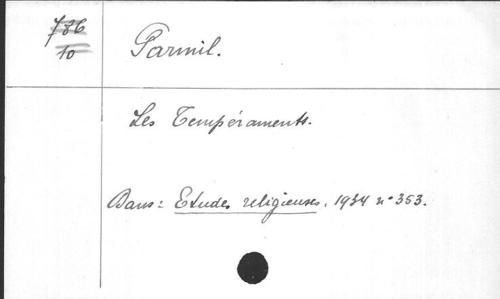 786
10
Parmil.
Les Tempéraments.
Dans: Etudes religieuses, 1934 n° 353.